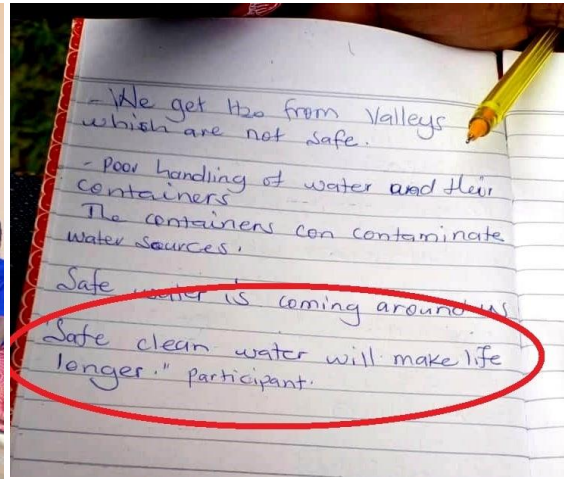 - We get H2o from Valleys
which are not safe.
- Poor handling of water and their
containers
The containers can contaminate
water sources.
Safe water is coming around us
"Safe clean water will make life
longer." participant.